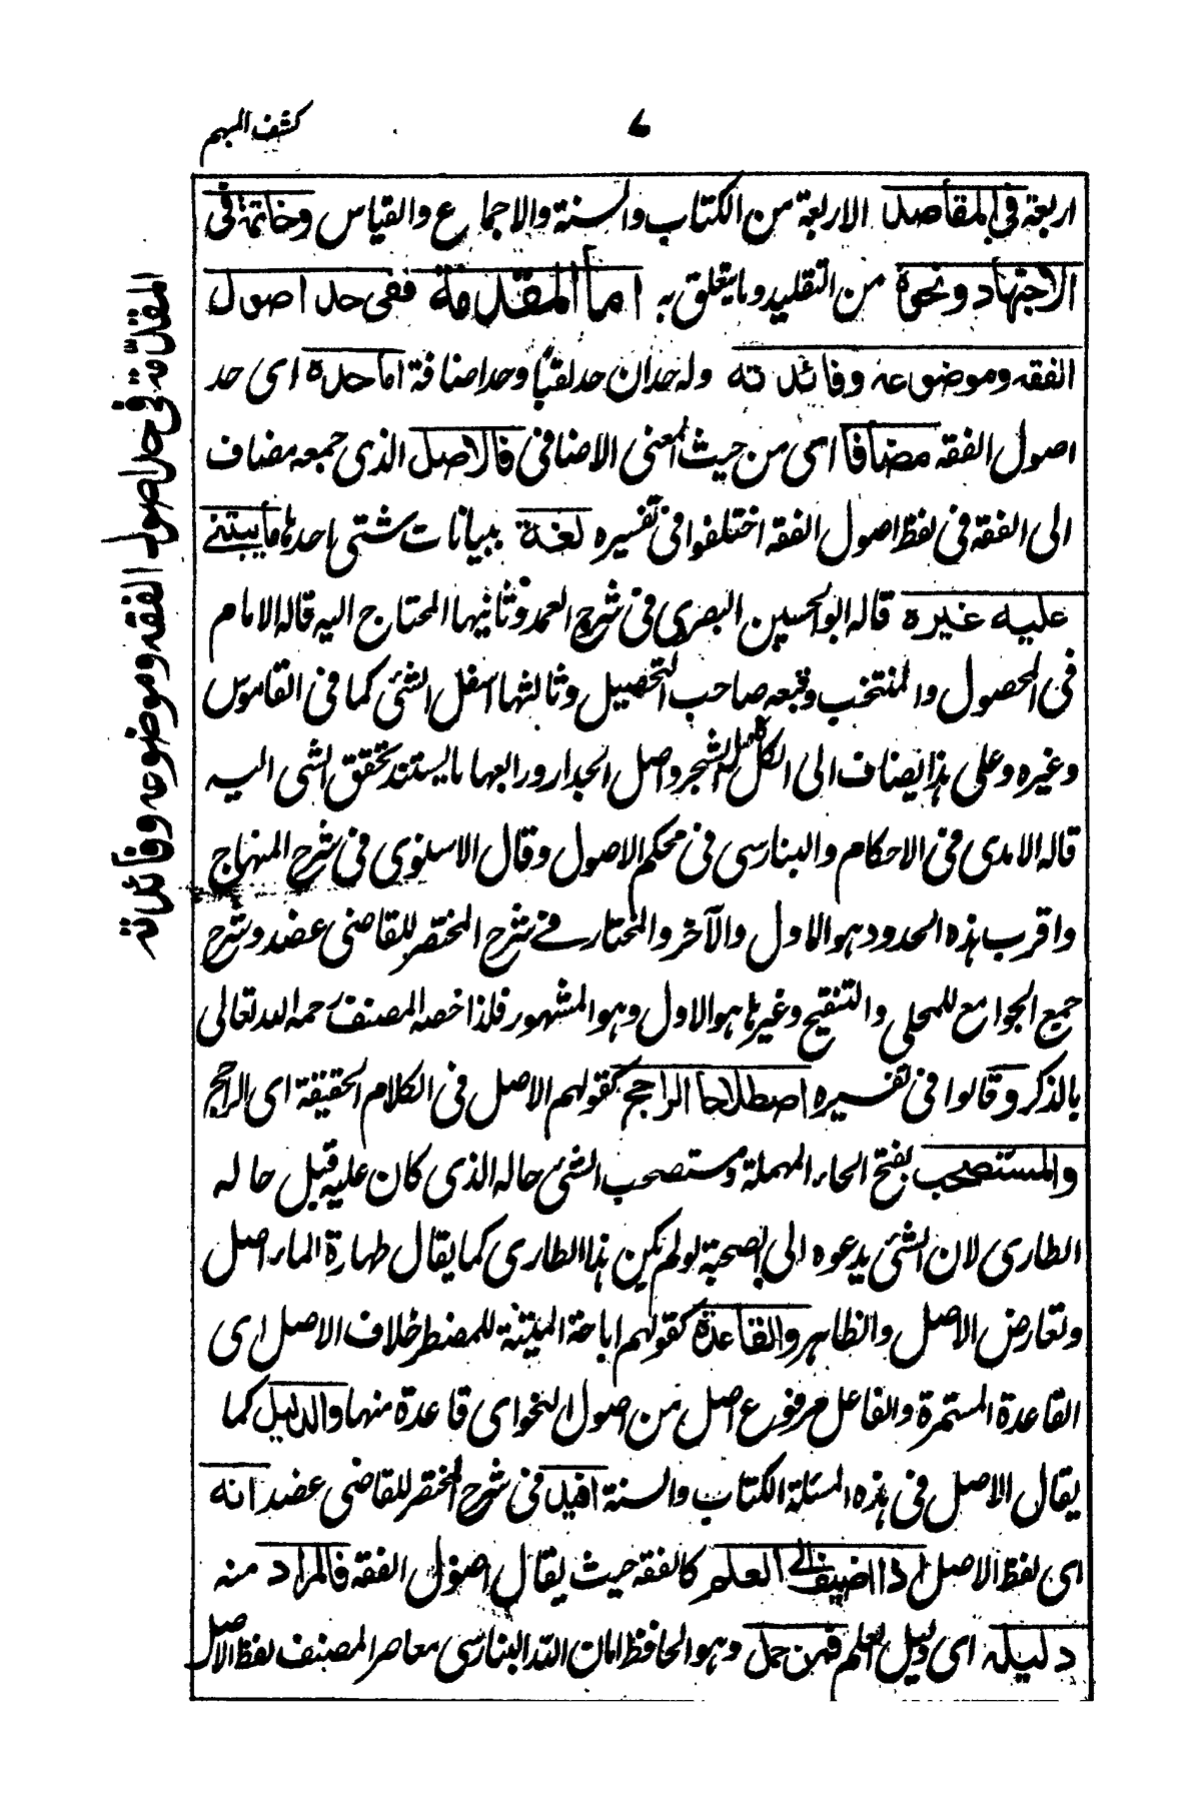 كشف المبهم
٧
اربعة في المقاصد الاربعة من الكتاب والسنة والاجماع والقياس وخاتمة في
الاجتهاد ونحوه من التقليد وما يتعلق به اما المقدمة ففى حد اصول
الفقه وموضوعه وفائدته وله حدان حد لقبًا وحد اضافة اما حده اى حد
اصول الفقه مضافا اى من حيث المعنى الاضافى فالاصل الذى جمعه مضاف
الى الفقه فى لفظ اصول الفقه اختلفوا فى تفسيره لغة ببيانات شتى احدها ما يبتنے
عليه غيره قاله ابو الحسين البصرى فى شرح العمد وثانيها المحتاج اليه قاله الامام
فى المحصول والمنتخب وتبعه صاحب التحصيل وثالثها اسفل الشئ كما فى القاموس
وغيره وعلى هذا يضاف الى الكل كاصل الشجر واصل الجدار ورابعها ما يستند تحقق الشى اليه
قاله الامدى فى الاحكام والبنارسى فى محكم الاصول وقال الاسنوى فى شرح المنهاج
واقرب هذه الحدود هو الاول والآخر والمختار فے شرح المختصر للقاضى عضد وشرح
جمع الجوامع للمحلى والتنقيح وغيرها هو الاول وهو المشهور فلذا خصه المصنف رحمه الله تعالى
بالذكر وقالوا فى تفسيره اصطلاحا الراجح كقولهم الاصل فى الكلام الحقيقة اى الراجح
والمستصحب بفتح الحاء المهملة ومستصحب الشئ حاله الذى كان عليه قبل حاله
الطارى لان الشئ يدعوه الى الصحبة لو لم يكن هذا الطارى كما يقال طهارة الماء اصل
وتعارض الاصل والظاهر والقاعدة كقولهم اباحة الميتة للمضطر خلاف الاصل اى
القاعدة المستمرة والفاعل مرفوع اصل من اصول النحو اى قاعدة منها والدليل كما
يقال الاصل فى هذه المسئلة الكتاب والسنة افيد فى شرح المختصر للقاضى عضد انه
اى لفظ الاصل اذا اضيف الى العلم كالفقه حيث يقال اصول الفقه فالمراد منه
دليله اى دليل العلم فمن حمل وهو الحافظ امان الله البنارسى معاصر المصنف لفظ الاصل
المقدمة فى حد اصول الفقه وموضوعه وفائدته